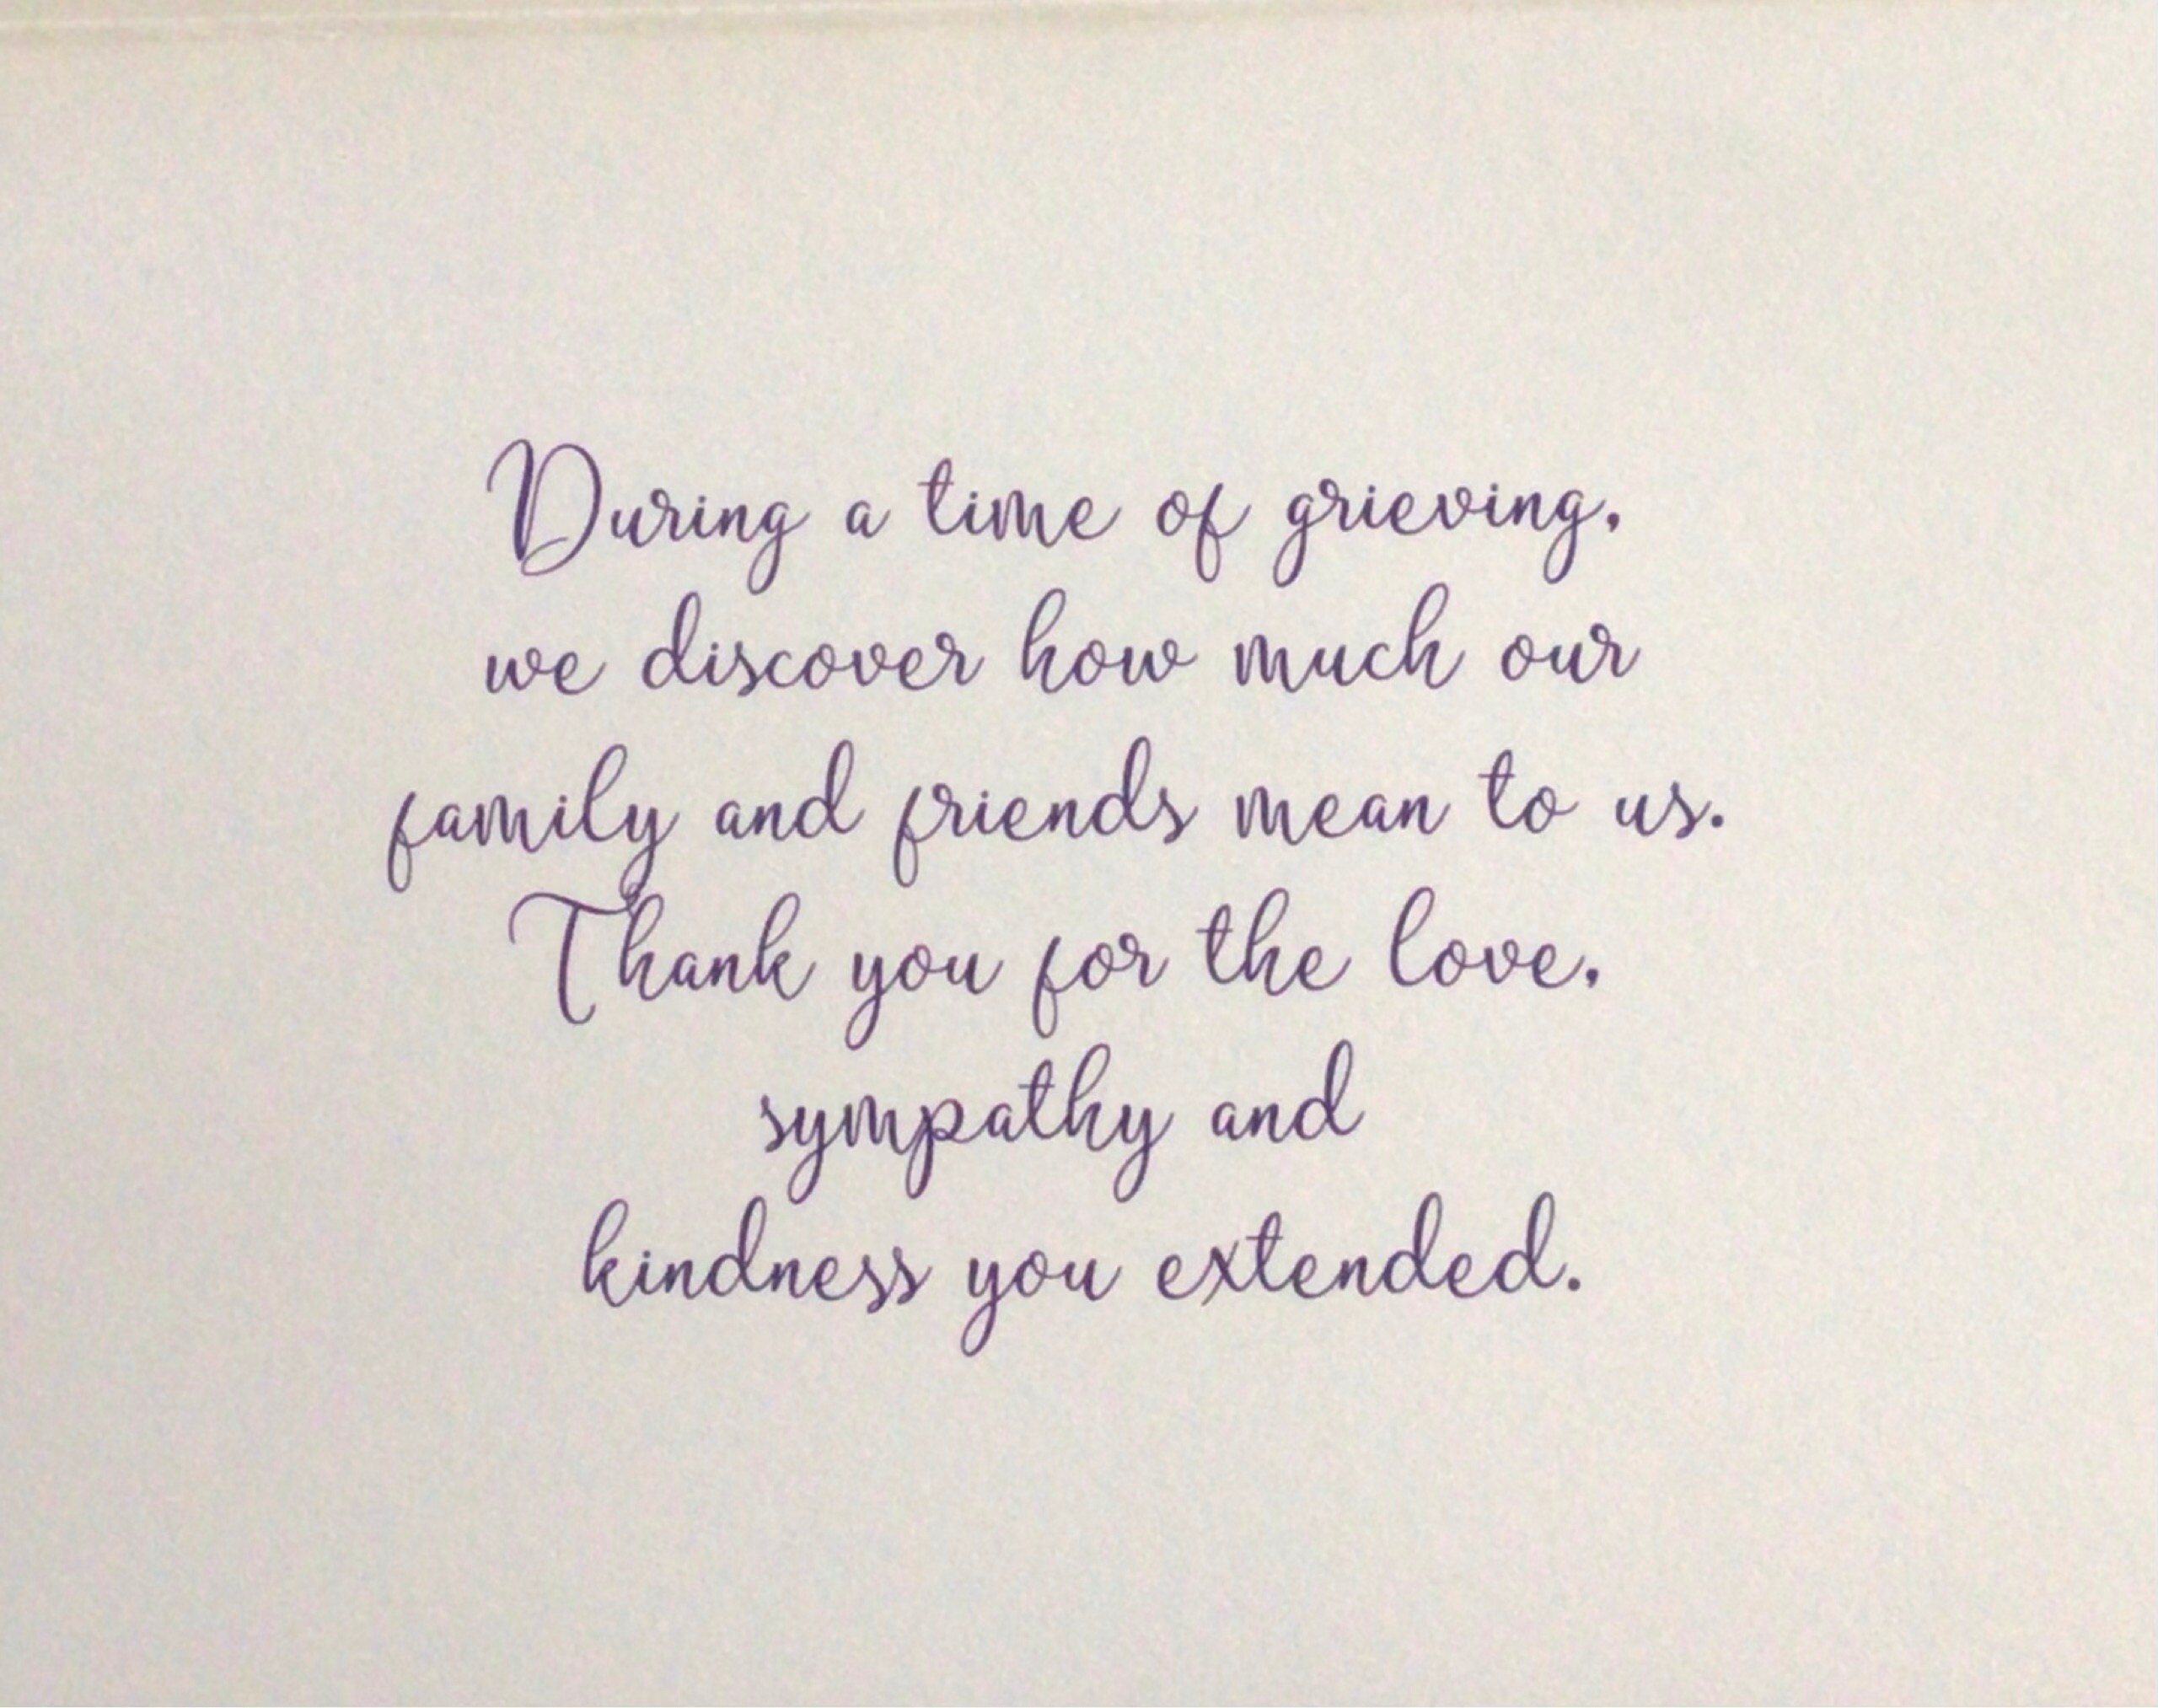 During a time of grieving,
we discover how much our
family and friends mean to us.
Thank you for the love,
sympathy and
kindness you extended.